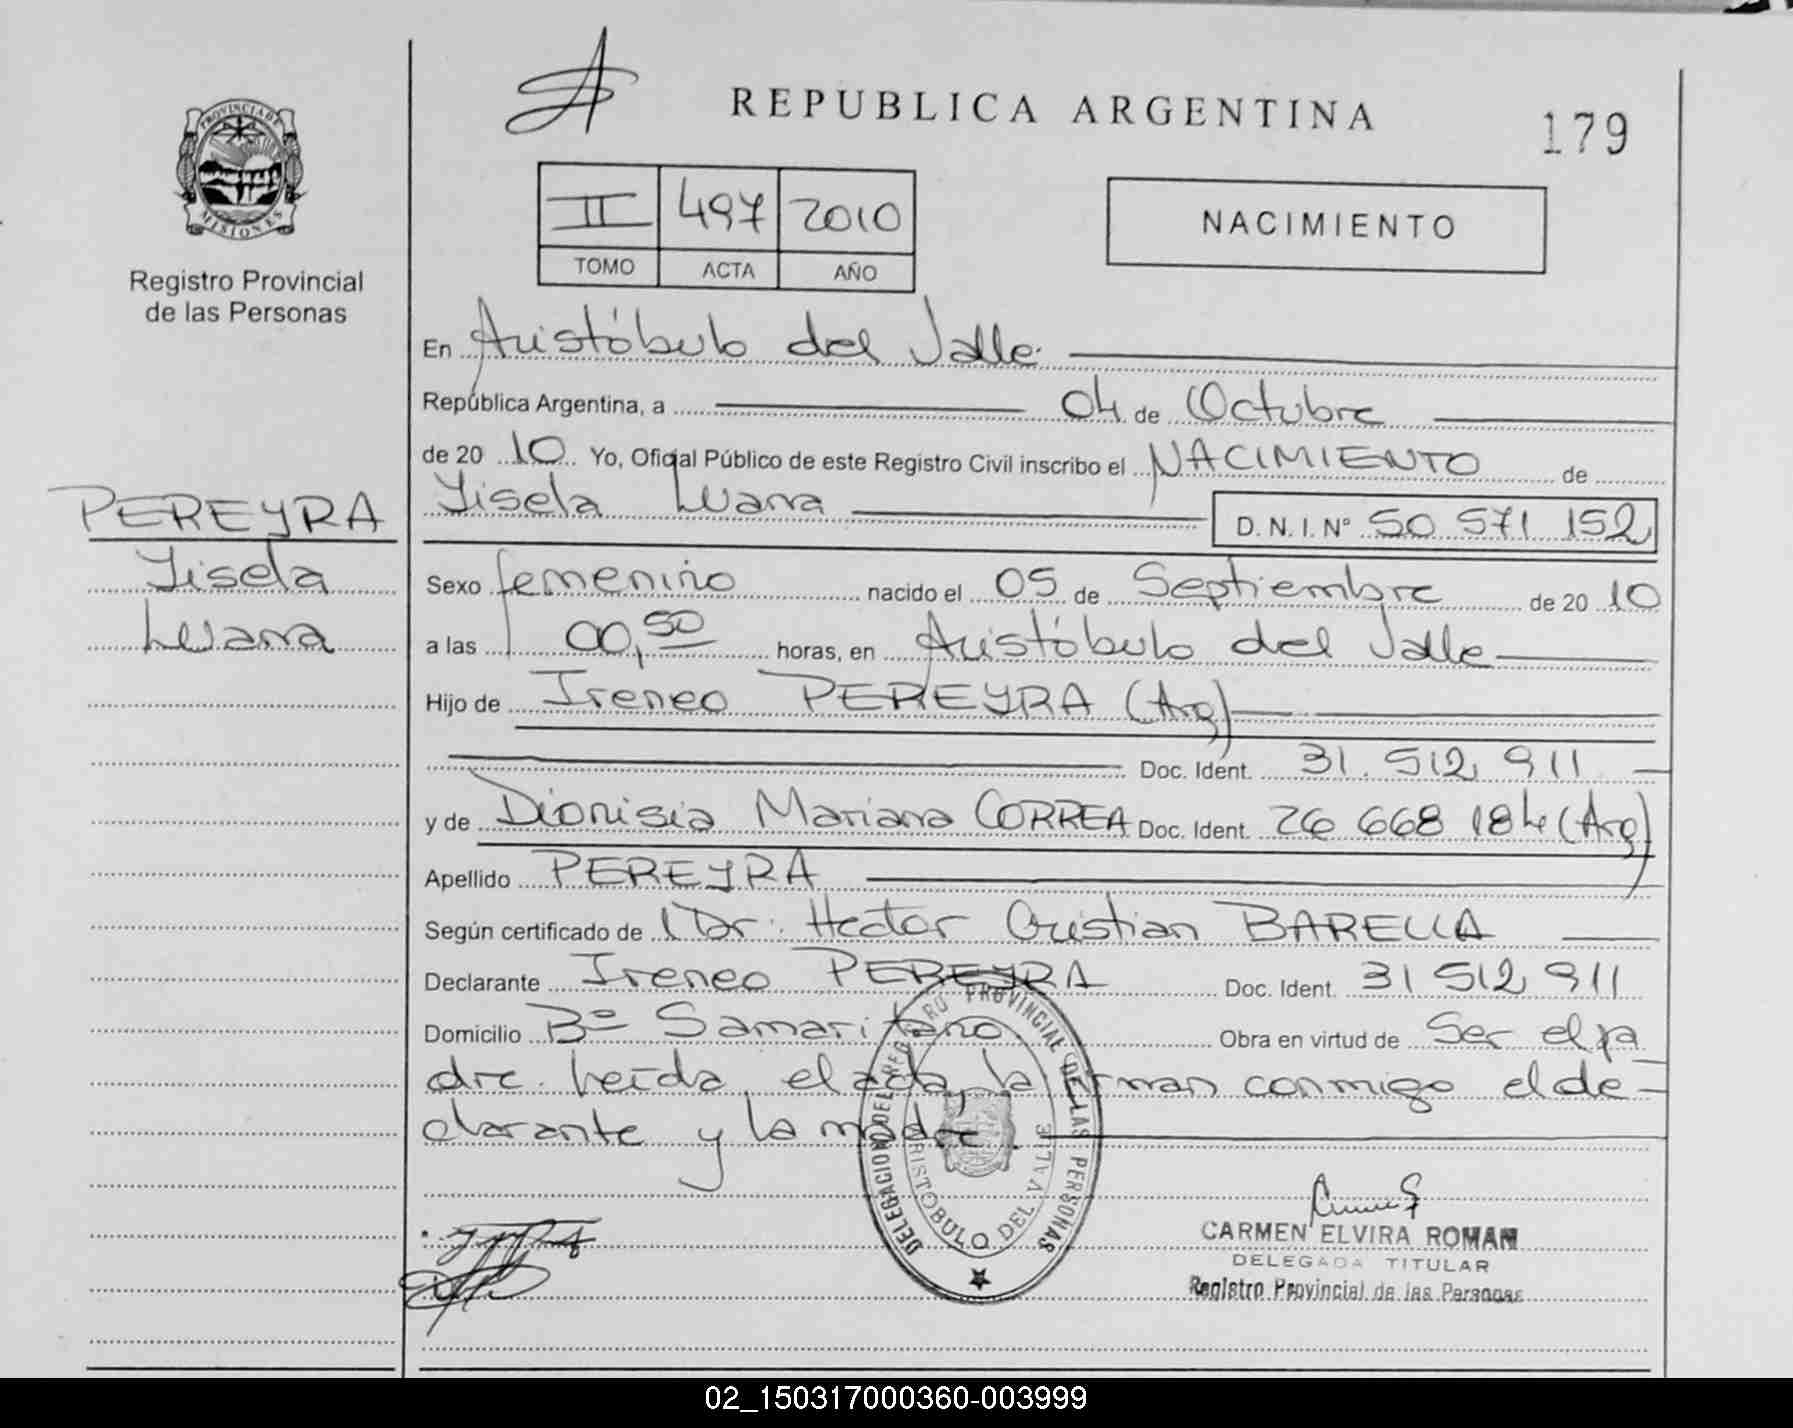 REPUBLICA ARGENTINA
179
PROVINCIA DE
MISIONES
Registro Provincial
de las Personas
II 497 2010
TOMO ACTA AÑO
NACIMIENTO
En Aristóbulo del Valle
República Argentina, a 04 de Octubre
de 20 10 Yo, Oficial Público de este Registro Civil inscribo el NACIMIENTO de
Yisela Luana
D.N.I. Nº 50 571 152
PEREYRA
Yisela
Luana
Sexo femenino nacido el 05 de Septiembre de 20 10
a las 00,50 horas, en Aristóbulo del Valle
Hijo de Ireneo PEREYRA (Arg)
Doc. Ident. 31.512.911
y de Dionisia Mariana CORREA Doc. Ident. 26 668 184 (Arg)
Apellido PEREYRA
Según certificado de Dr: Hector Cristian BARELLA
Declarante Ireneo PEREYRA Doc. Ident. 31 512 911
Domicilio Bº Samaritano Obra en virtud de Ser el pa
dre. Leída el acta, la firman conmigo el de-
clarante y la madre.
DELEGACION DEL REGISTRO PROVINCIAL DE LAS PERSONAS
ARISTOBULO DEL VALLE
CARMEN ELVIRA ROMAN
DELEGADA TITULAR
Registro Provincial de las Personas
02_150317000360-003999